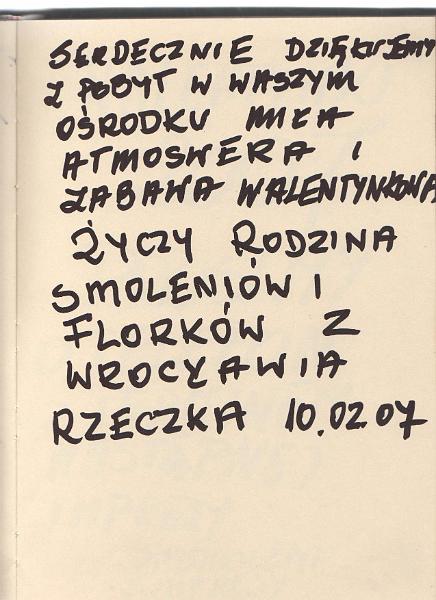 SERDECZNIE DZIĘKUJEMY
Z POBYT W WASZYM
OŚRODKU MIŁA
ATMOSWERA I
ZABAWA WALENTYNKOWA
ŻYCZY RODZINA
SMOLENIÓW I
FLORKÓW Z
WROCŁAWIA
RZECZKA 10.02.07